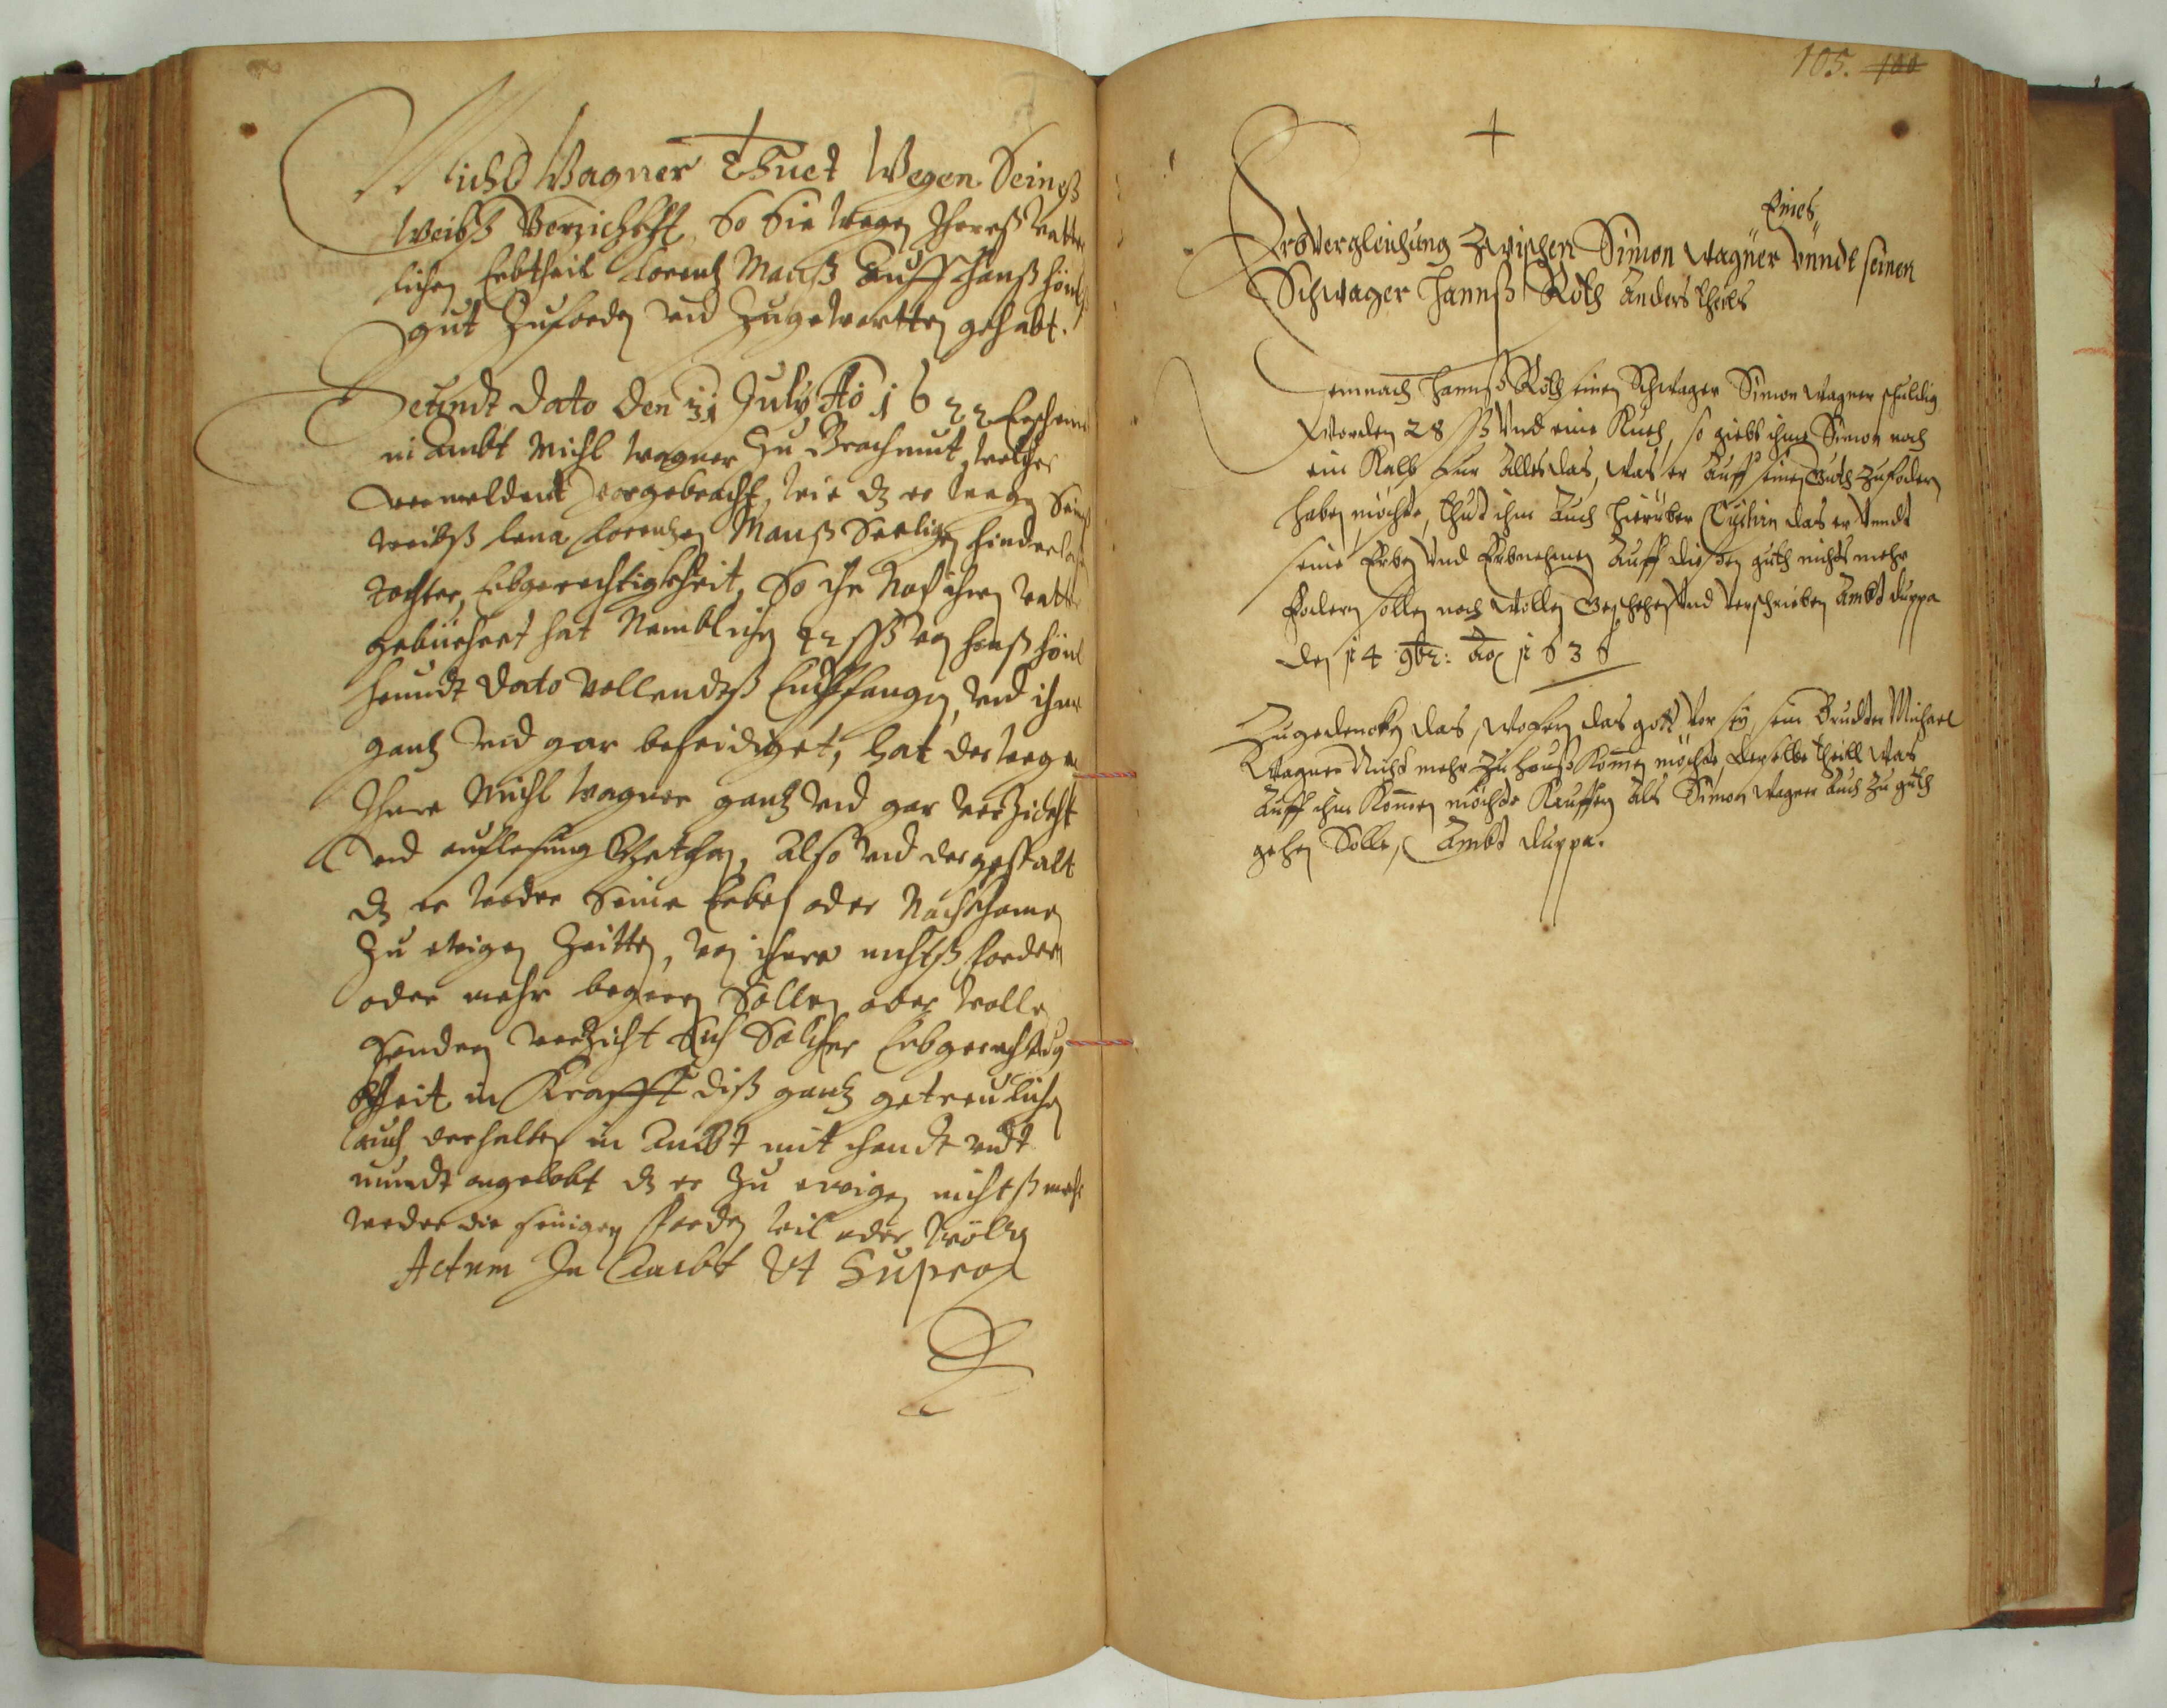 Michl Wagner Thuet Wegen Seineß
Weibß Verzichkht, So Sie wegen Ihreß Vatter
lichen Erbtheil Lorentz Mauß Auff Hanß Hönl
gut Zufordern und Zugewartten gehabt.
Heundt Dato Den 31 July Ao 1622 Erscheint
in Ambt Michl Wagner Zu welcher
vermeldent vorgebracht, wie dz er wegen Seines
weibß Lena Lorentzen Mauß Seeligen hinderlaßene
Tochter, Erbgerechtigkheit, So ihr Nach ihren Vatter
gebüehrt hat Nemblichen 22 ßß von Hanß Hönl
heundt Dato vollendtß Empfangen, und ihme
gantz und gar befridiget, hat derwegen
Ihme Michl Wagner gantz und gar verzicht
und aufflesung Gethan, Also und dergestalt
dz er weder Seine Erben oder Nachkhomen
Zu ewigen Zeitten, von ihme nichtß fordern
oder mehr begeren Sollen oder wolle
Sondern verzicht Sich Solcher Erbgerechtig
kheit in Krafft diß gantz getreulichen
auch derhalben in Ambt mit handt undt
mundt angelobt dz er Zu ewigen nichtß mehr
weder die seinigen fordern wil oder wöllen
Actum In Ambt Ut Supra
105. 100
Eines
Erbvergleichung Zwischen Simon Wagner vnndt seinen
Schwager Hannß Roth Anders theils
Demnach Hannß Roth seinen Schwager Simon Wagner schuldig
Worden 28 ßß Vnd eine Kueh, so giebt ihme Simon noch
ein Kalb Fur Alles das, Was er Auff seinen Guth Zufodern
haben möchte, thut ihn Auch hierüber Quitirn das er Vnndt
seine Erben Vnd Erbnehmen Auff diesen guth nichts mehr
Fodern sollen noch Wollen Geschehen Vnd Verschrieben Ambt Duppa
den 14 9br: Ao 1636
Zugedencken das, Wofern, das gott Vor sey, sein Bruder Michael
Wagner Nicht mehr Zu Hauß Komen möchte, derselbe theill Was
Auff ihn Komen möchte Kauffen Als Simon Wagner Auch Zu guth
gehen Solle, Ambt Duppa.